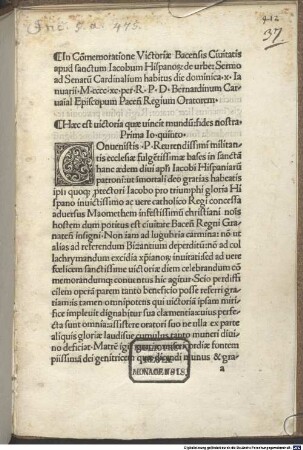 Inc. s. a. 475.
37
¶In Cōmemoratione Victoriæ Bacensis Ciuitatis
apud sanctum Iacobum Hispanoꝝ de urbe: Sermo
ad Senatū Cardinalium habitus die dominica .x. Ia
nuarii .M.cccc.xc. per .R.P.D. Bernardinum Car
uaial Episcopum Paceñ Regium Oratorem.
¶Hæc est uictoria quæ uincit mundū: fides nostra
Prima Io. quinto.
COnuenistis .P. Reuerendissimi militan
tis ecclesiæ fulgētissimæ bases in sanctā
hanc ædem diui apl̄i Iacobi Hispaniarū
patroni: ut īmortali deo gratias habeatis
ip̄i quoqꝫ p̄ectori Iacobo pro triumphi gloria Hi
spano inuictissimo ac uere catholico Regi concessa
aduersus Maomethem infestissimū christiani noīs
hostem dum potitus est ciuitate Baceñ Regni Gra
natēsi insigni. Non iam ad lugubria carmina: nō ut
alias ad referendum Bizantium deperditū: nō ad col
lachrymandum excidia xp̄ianoꝝ inuitatis: sed ad ue
re fœlicem sanctissimæ uictoriæ diem celebrandum cō
memorandumqꝫ: conuentus hic agitur. Scio perdiffi
cilem opera parem tanto beneficio posse referri gra
tiam: is tamen omnipotens qui uictoria ipsam miri
fice impleuit dignabitur sua clementia: cuius perfe
cta sunt omnia: assistere oratori suo ne ulla ex parte
aliquis gloriæ laudisue cumulus tanto muneri diui
no deficiat. Matrē misericordiæ fontem
piissimā dei genitricem munus & gra
a
MONACENSIS.